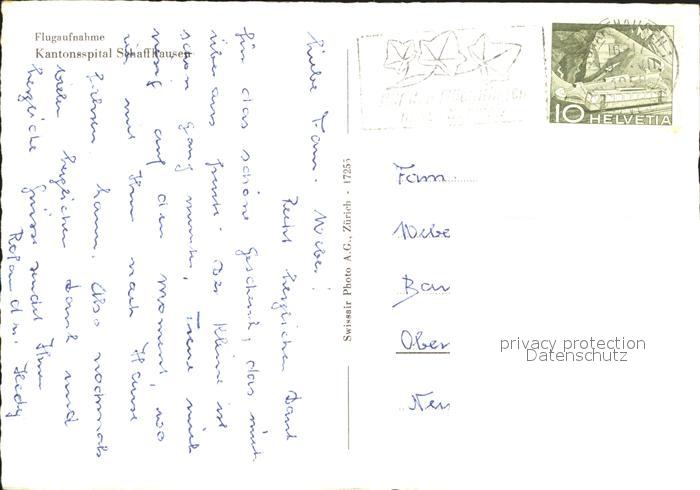 Flugaufnahme
Kantonsspital Schaffhausen
Liebe Fam. Weber!
Recht herzlichen Dank
für das schöne Geschenk, das mich
überaus freute. Der Kleine ist
schon ganz munter, freue mich
riesig auf den Moment, wo
ich mit Ihm nach Hause
kann. Also nochmals
vielen herzlichen Dank und
herzliche Grüsse sendet Ihnen
Roland u. Hedy
Swissair Photo A.G., Zürich - 17253
10 HELVETIA
Fam.
Webe
Ban
Ober
privacy protection
Datenschutz